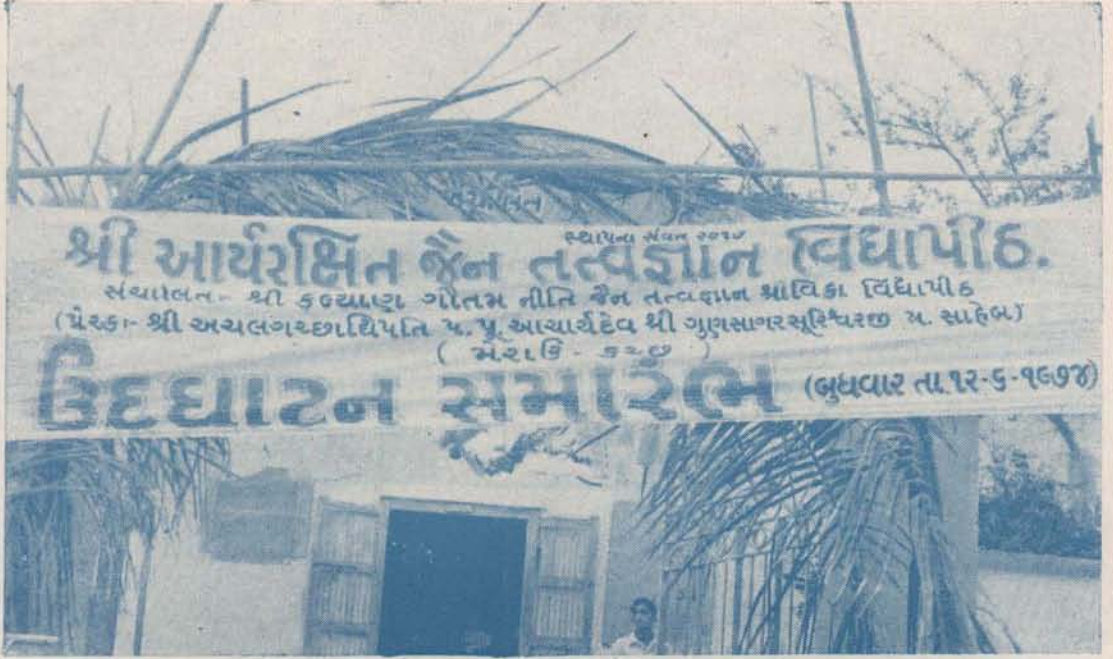 સંચાલિત
સ્થાપના સંવત ૨૦૧૭
શ્રી આર્યરક્ષિત જૈન તત્વજ્ઞાન વિદ્યાપીઠ.
સંચાલિત- શ્રી કલ્યાણ ગૌતમ નીતિ જૈન તત્વજ્ઞાન શ્રાવિકા વિદ્યાપીઠ
(પ્રેરકઃ- શ્રી અચલગચ્છાધિપતિ પ. પૂ. આચાર્યદેવ શ્રી ગુણસાગરસૂરિશ્વરજી મ. સાહેબ)
( મેરાઉ - કચ્છ )
ઉદઘાટન સમારંભ (બુધવાર તા. ૧૨-૬-૧૯૭૪)